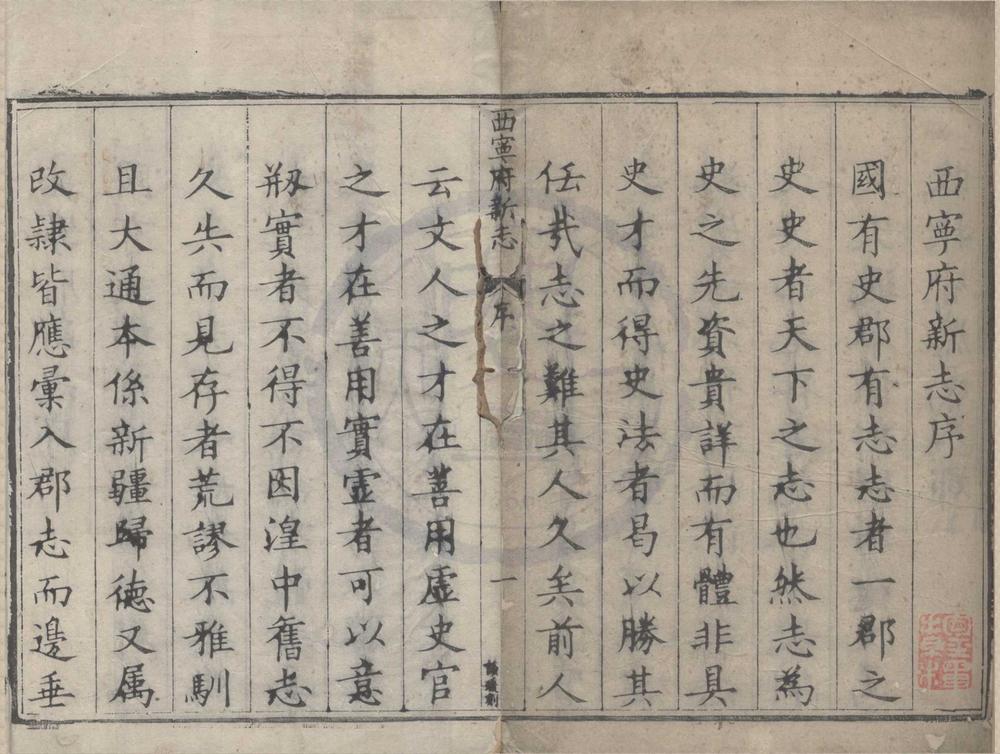 西寧府新志序
國有史郡有志志者一郡之
史史者天下之志也然志為
史之先資貴詳而有體非具
史才而得史法者曷以勝其
任哉志之難其人久矣前人
西寧府新志
序
一
云文人之才在善用虛史官
之才在善用實虛者可以意
剏實者不得不因湟中舊志
久失而見存者荒謬不雅馴
且大通本係新疆歸德又属
改隷皆應彙入郡志而邊垂